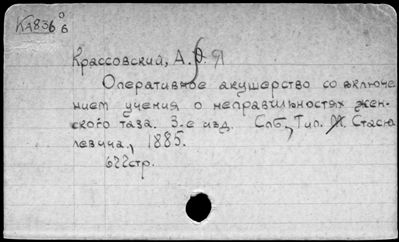 КА836 0/6
Крассовский, А. Я
Оперативное акушерство со включе-
нием учения о неправильностях жен-
ского таза. 3-е изд. Спб, Тип. М. Стасю-
левича, 1885.
622стр.